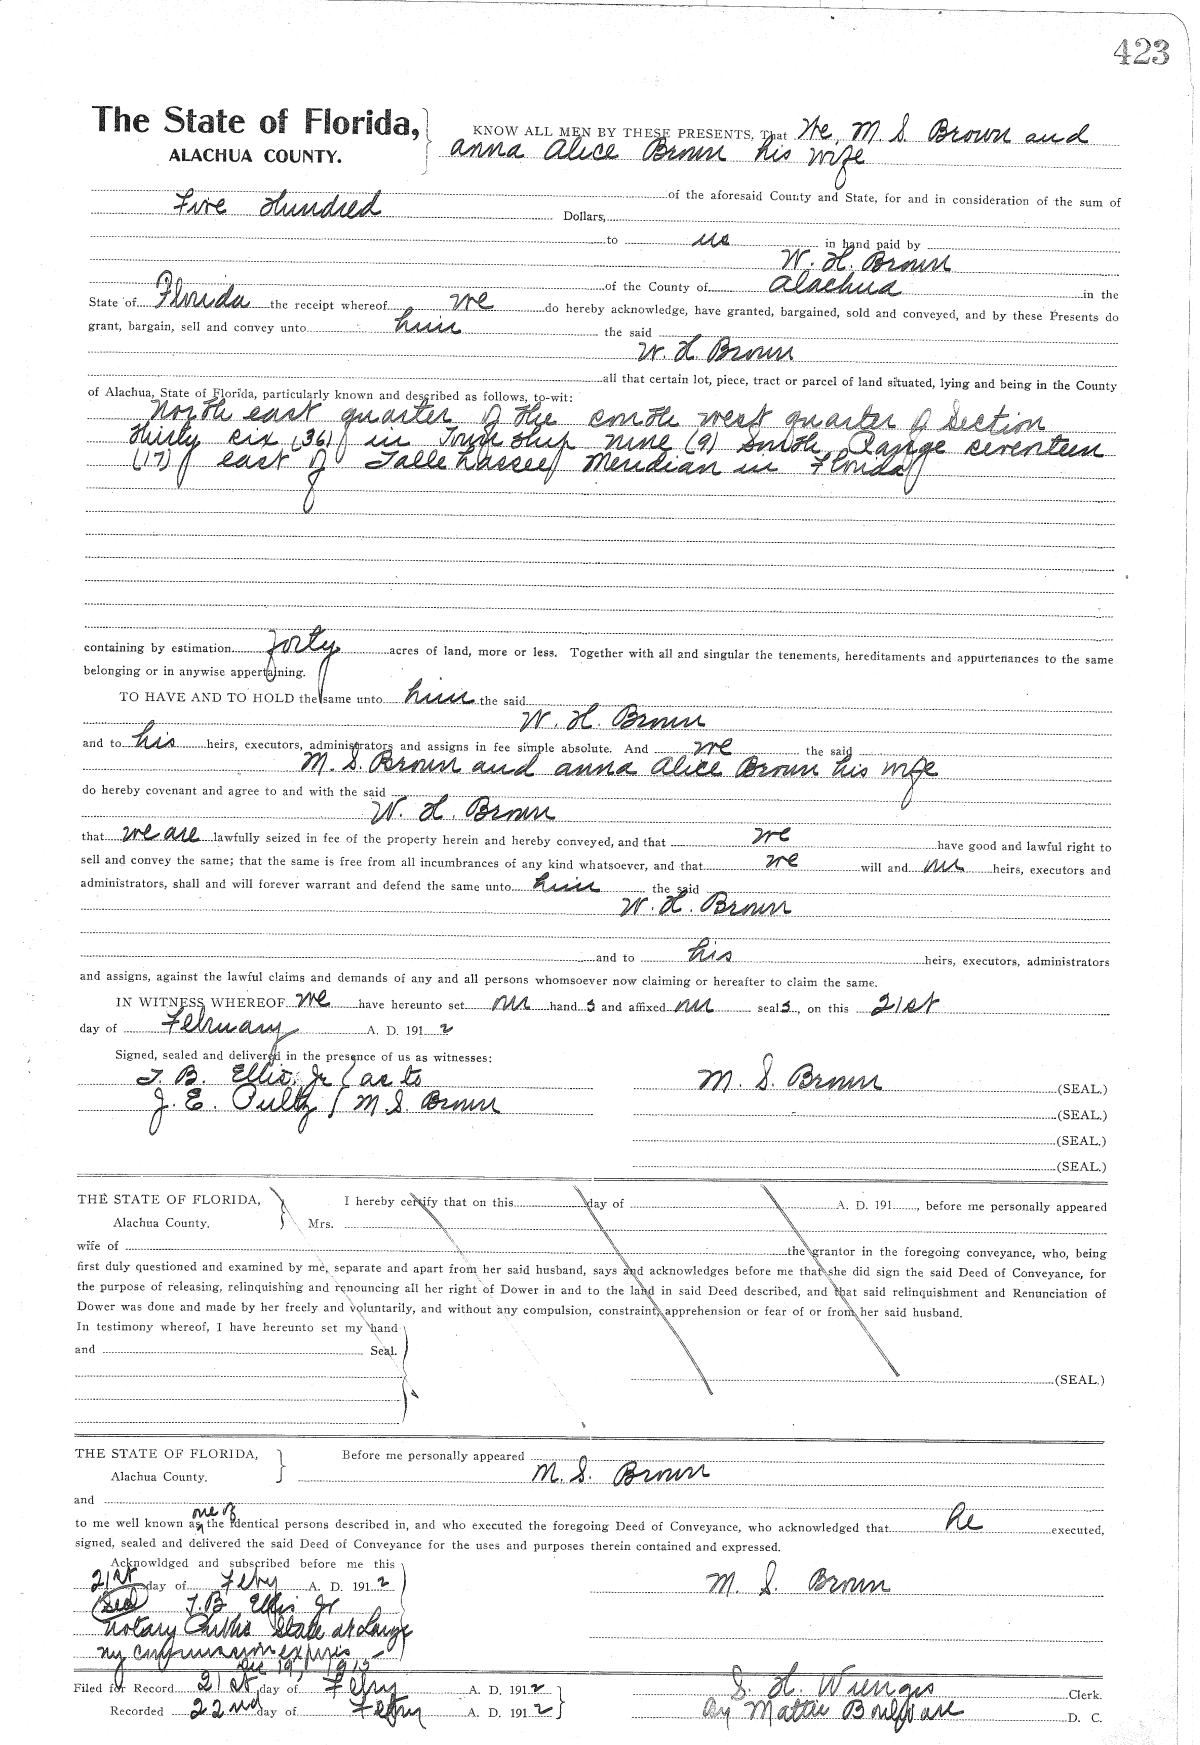 423
The State of Florida,
ALACHUA COUNTY.
KNOW ALL MEN BY THESE PRESENTS, That We, M S. Brown and
Anna Alice Brown his wife
of the aforesaid County and State, for and in consideration of the sum of
Five Hundred Dollars,
to us in hand paid by
W. H. Brown
of the County of Alachua in the
State of Florida the receipt whereof we do hereby acknowledge, have granted, bargained, sold and conveyed, and by these Presents do
grant, bargain, sell and convey unto him the said
W. H. Brown
all that certain lot, piece, tract or parcel of land situated, lying and being in the County
of Alachua, State of Florida, particularly known and described as follows, to-wit:
North east quarter of the south west quarter of Section
thirty six (36) in Township nine (9) South, Range seventeen
(17) east of Tallehassee Meridian in Florida
containing by estimation forty acres of land, more or less. Together with all and singular the tenements, hereditaments and appurtenances to the same
belonging or in anywise appertaining.
TO HAVE AND TO HOLD the same unto him the said
W. H. Brown
and to his heirs, executors, administrators and assigns in fee simple absolute. And we the said
M. S. Brown and Anna Alice Brown his wife
do hereby covenant and agree to and with the said
W. H. Brown
that we are lawfully seized in fee of the property herein and hereby conveyed, and that we have good and lawful right to
sell and convey the same; that the same is free from all incumbrances of any kind whatsoever, and that we will and our heirs, executors and
administrators, shall and will forever warrant and defend the same unto him the said
W. H. Brown
and to his heirs, executors, administrators
and assigns, against the lawful claims and demands of any and all persons whomsoever now claiming or hereafter to claim the same.
IN WITNESS WHEREOF we have hereunto set our hand s and affixed our seal s, on this 21st
day of February A. D. 191 2
Signed, sealed and delivered in the presence of us as witnesses:
T. B. Ellis, Jr ( as to
J. E. ( M S. Brown
M. S. Brown (SEAL.)
(SEAL.)
(SEAL.)
(SEAL.)
THE STATE OF FLORIDA,
Alachua County.
I hereby certify that on this day of A. D. 191 , before me personally appeared
Mrs.
wife of the grantor in the foregoing conveyance, who, being
first duly questioned and examined by me, separate and apart from her said husband, says and acknowledges before me that she did sign the said Deed of Conveyance, for
the purpose of releasing, relinquishing and renouncing all her right of Dower in and to the land in said Deed described, and that said relinquishment and Renunciation of
Dower was done and made by her freely and voluntarily, and without any compulsion, constraint, apprehension or fear of or from her said husband.
In testimony whereof, I have hereunto set my hand
and Seal.
(SEAL.)
THE STATE OF FLORIDA,
Alachua County.
Before me personally appeared
M. S. Brown
and
one of
to me well known as the identical persons described in, and who executed the foregoing Deed of Conveyance, who acknowledged that he executed,
signed, sealed and delivered the said Deed of Conveyance for the uses and purposes therein contained and expressed.
Acknowldged and subscribed before me this
21st day of Feby A. D. 191 2
M. S. Brown
(Seal) T. B Ellis Jr
Notary Public State at Large
my commission expires
Dec 19,
Filed for Record 21st day of Feby A. D. 191 2
S. H. Wienges Clerk.
Recorded 22nd day of Feby A. D. 191 2
By Mattie Boulware D. C.